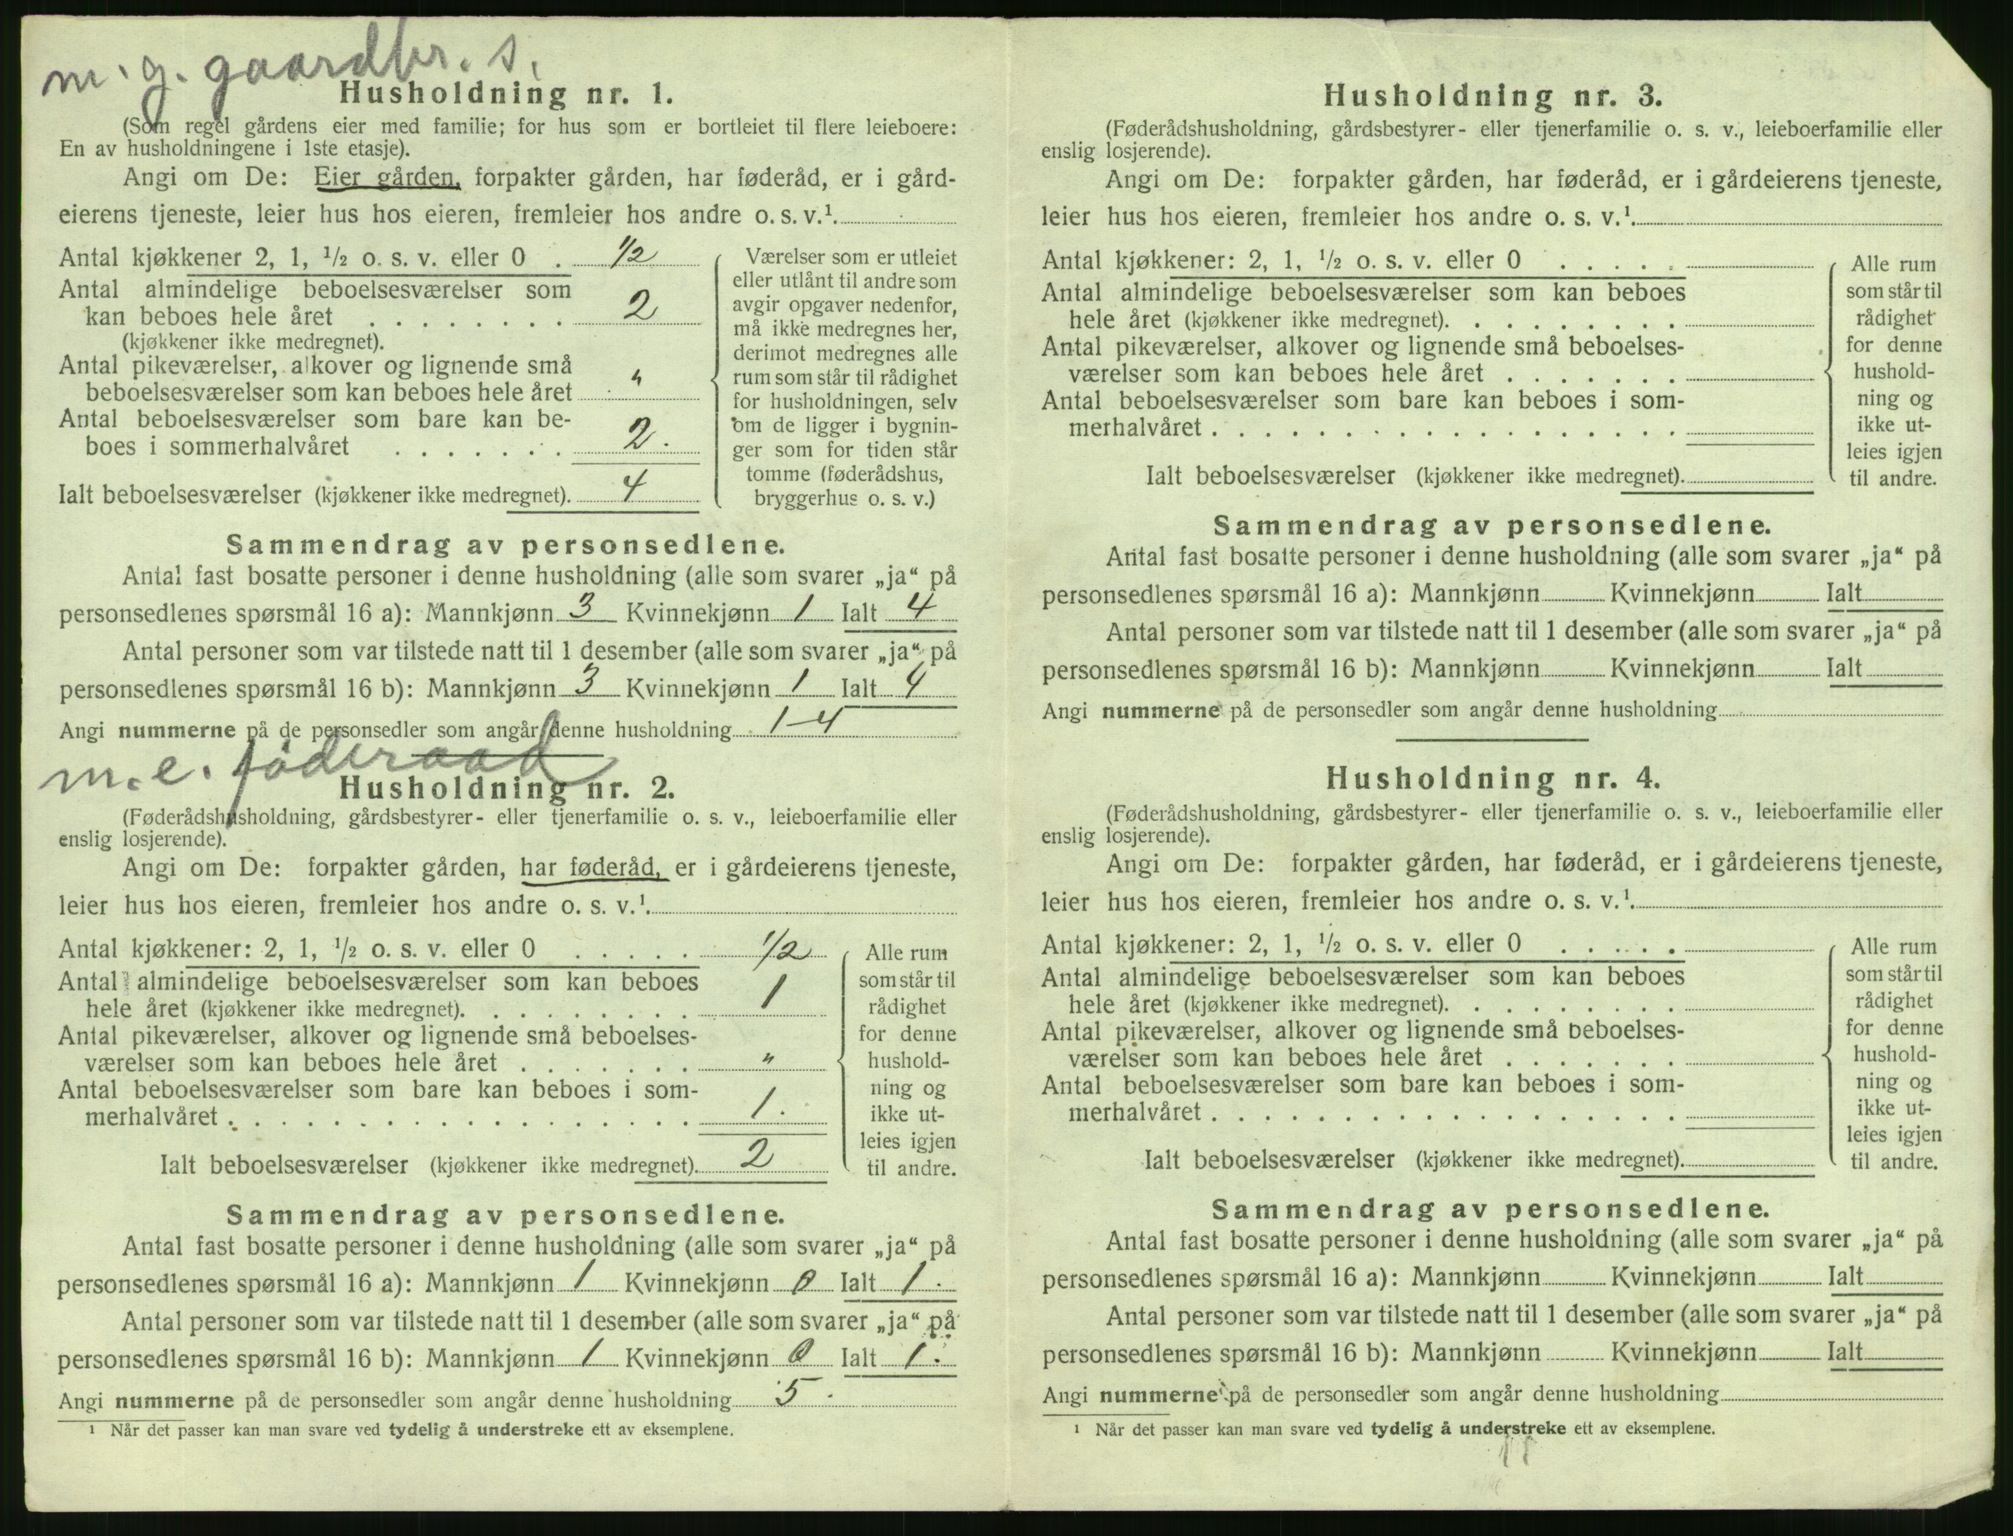 m. g. gaardbr. s.
Husholdning nr. 1.
(Som regel gårdens eier med familie; for hus som er bortleiet til flere leieboere:
En av husholdningene i 1ste etasje).
Angi om De: Eier gården, forpakter gården, har føderåd, er i gård-
eierens tjeneste, leier hus hos eieren, fremleier hos andre o. s. v.¹
Antal kjøkkener 2, 1, ½ o. s. v. eller 0 . ½
Antal almindelige beboelsesværelser som
kan beboes hele året . . . . . . . . 2
(kjøkkener ikke medregnet).
Antal pikeværelser, alkover og lignende små
beboelsesværelser som kan beboes hele året "
Antal beboelsesværelser som bare kan be-
boes i sommerhalvåret . . . . . . . 2.
Ialt beboelsesværelser (kjøkkener ikke medregnet). 4
Værelser som er utleiet
eller utlånt til andre som
avgir opgaver nedenfor,
må ikke medregnes her,
derimot medregnes alle
rum som står til rådighet
for husholdningen, selv
om de ligger i bygnin-
ger som for tiden står
tomme (føderådshus,
bryggerhus o. s. v.)
Sammendrag av personsedlene.
Antal fast bosatte personer i denne husholdning (alle som svarer „ja“ på
personsedlenes spørsmål 16 a): Mannkjønn 3 Kvinnekjønn 1 Ialt 4
Antal personer som var tilstede natt til 1 desember (alle som svarer „ja“ på
personsedlenes spørsmål 16 b): Mannkjønn 3 Kvinnekjønn 1 Ialt 4
Angi nummerne på de personsedler som angår denne husholdning 1-4
m. e. føderaad
Husholdning nr. 2.
(Føderådshusholdning, gårdsbestyrer- eller tjenerfamilie o. s. v., leieboerfamilie eller
enslig losjerende).
Angi om De: forpakter gården, har føderåd, er i gårdeierens tjeneste,
leier hus hos eieren, fremleier hos andre o. s. v.¹
Antal kjøkkener: 2, 1, ½ o. s. v. eller 0 . . . . . ½
Antal almindelige beboelsesværelser som kan beboes
hele året (kjøkkener ikke medregnet). . . . . . . . . 1
Antal pikeværelser, alkover og lignende små beboelses-
værelser som kan beboes hele året . . . . . . . "
Antal beboelsesværelser som bare kan beboes i som-
merhalvåret . . . . . . . . . . . . . . . . . . 1.
Ialt beboelsesværelser (kjøkkener ikke medregnet). 2
Alle rum
som står til
rådighet
for denne
hushold-
ning og
ikke ut-
leies igjen
til andre.
Sammendrag av personsedlene.
Antal fast bosatte personer i denne husholdning (alle som svarer „ja“ på
personsedlenes spørsmål 16 a): Mannkjønn 1 Kvinnekjønn 0 Ialt 1.
Antal personer som var tilstede natt til 1 desember (alle som svarer „ja“ på
personsedlenes spørsmål 16 b): Mannkjønn 1 Kvinnekjønn 0 Ialt 1.
Angi nummerne på de personsedler som angår denne husholdning 5.
¹ Når det passer kan man svare ved tydelig å understreke ett av eksemplene.
Husholdning nr. 3.
(Føderådshusholdning, gårdsbestyrer- eller tjenerfamilie o. s. v., leieboerfamilie eller
enslig losjerende).
Angi om De: forpakter gården, har føderåd, er i gårdeierens tjeneste,
leier hus hos eieren, fremleier hos andre o. s. v.¹
Antal kjøkkener: 2, 1, ½ o. s. v. eller 0 . . . . .
Antal almindelige beboelsesværelser som kan beboes
hele året (kjøkkener ikke medregnet). . . . . . . . .
Antal pikeværelser, alkover og lignende små beboelses-
værelser som kan beboes hele året . . . . . . .
Antal beboelsesværelser som bare kan beboes i som-
merhalvåret . . . . . . . . . . . . . . . . . .
Ialt beboelsesværelser (kjøkkener ikke medregnet).
Alle rum
som står til
rådighet
for denne
hushold-
ning og
ikke ut-
leies igjen
til andre.
Sammendrag av personsedlene.
Antal fast bosatte personer i denne husholdning (alle som svarer „ja“ på
personsedlenes spørsmål 16 a): Mannkjønn Kvinnekjønn Ialt
Antal personer som var tilstede natt til 1 desember (alle som svarer „ja“ på
personsedlenes spørsmål 16 b): Mannkjønn Kvinnekjønn Ialt
Angi nummerne på de personsedler som angår denne husholdning
Husholdning nr. 4.
(Føderådshusholdning, gårdsbestyrer- eller tjenerfamilie o. s. v., leieboerfamilie eller
enslig losjerende).
Angi om De: forpakter gården, har føderåd, er i gårdeierens tjeneste,
leier hus hos eieren, fremleier hos andre o. s. v.¹
Antal kjøkkener: 2, 1, ½ o. s. v. eller 0 . . . . .
Antal almindelige beboelsesværelser som kan beboes
hele året (kjøkkener ikke medregnet). . . . . . . . .
Antal pikeværelser, alkover og lignende små beboelses-
værelser som kan beboes hele året . . . . . . .
Antal beboelsesværelser som bare kan beboes i som-
merhalvåret . . . . . . . . . . . . . . . . . .
Ialt beboelsesværelser (kjøkkener ikke medregnet).
Alle rum
som står til
rådighet
for denne
hushold-
ning og
ikke ut-
leies igjen
til andre.
Sammendrag av personsedlene.
Antal fast bosatte personer i denne husholdning (alle som svarer „ja“ på
personsedlenes spørsmål 16 a): Mannkjønn Kvinnekjønn Ialt
Antal personer som var tilstede natt til 1 desember (alle som svarer „ja“ på
personsedlenes spørsmål 16 b): Mannkjønn Kvinnekjønn Ialt
Angi nummerne på de personsedler som angår denne husholdning
¹ Når det passer kan man svare ved tydelig å understreke ett av eksemplene.